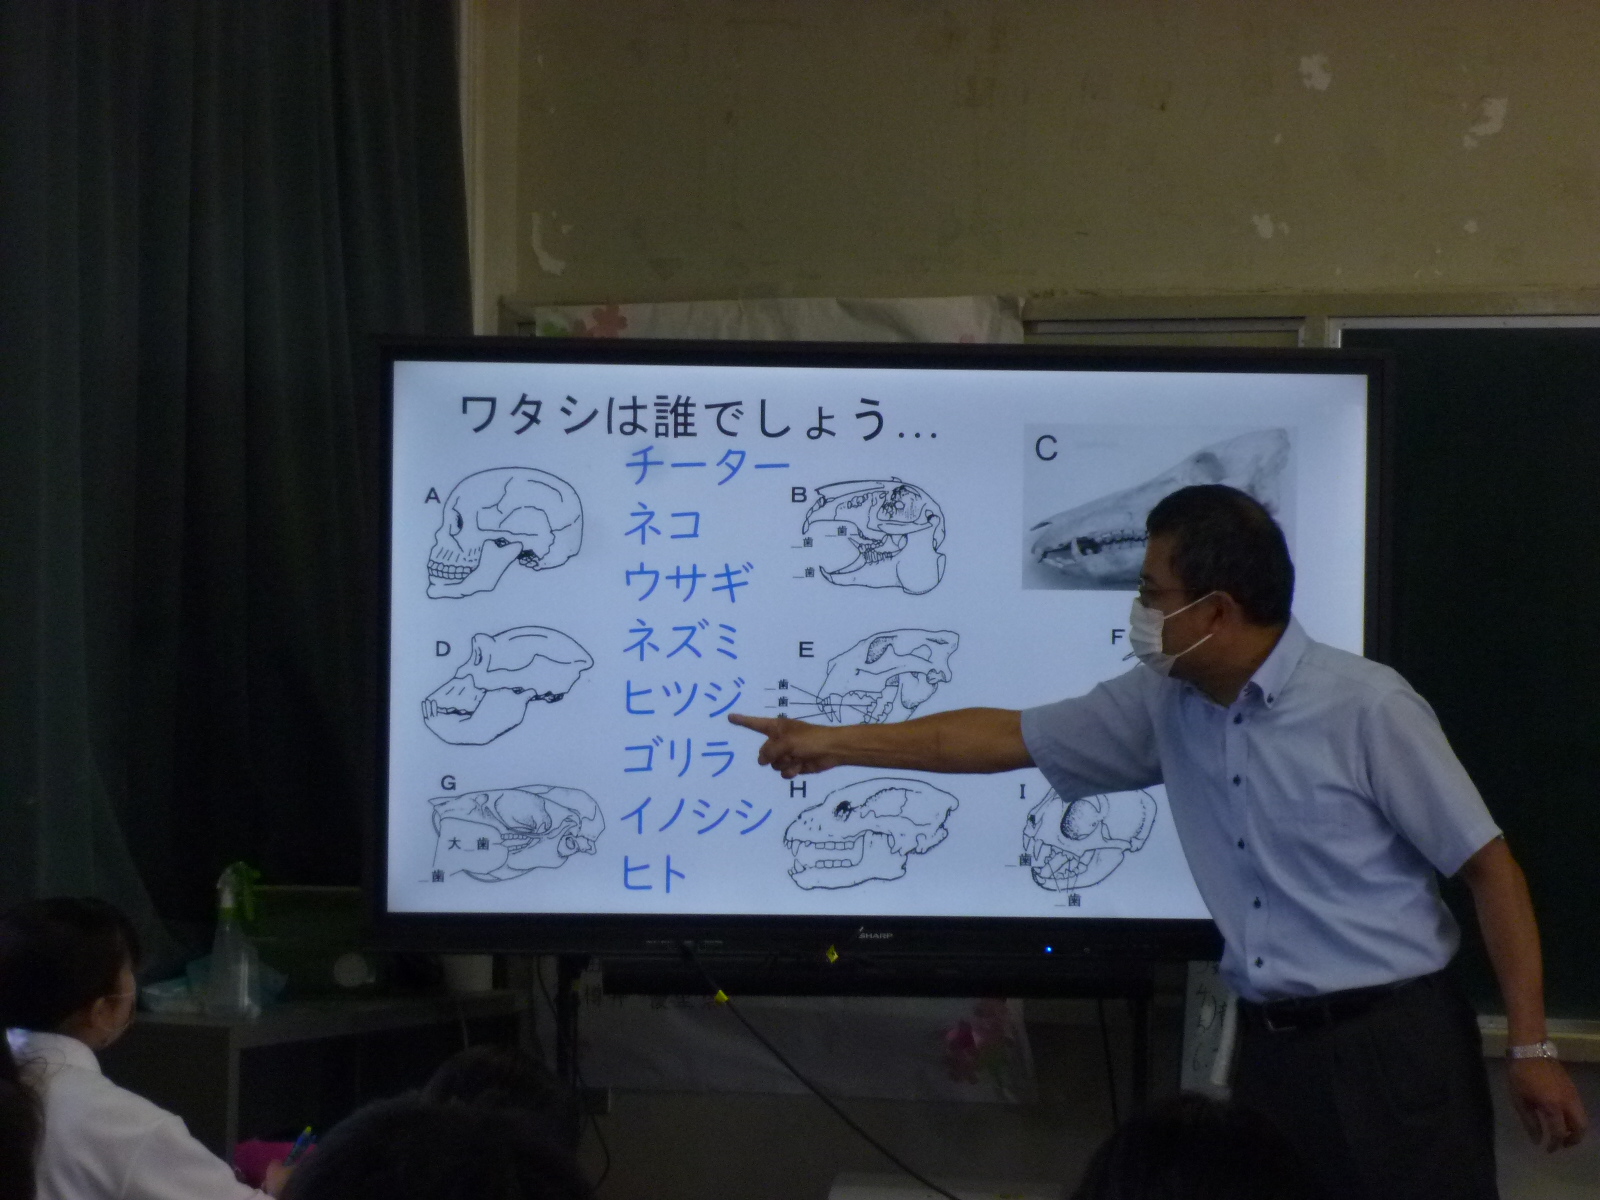 ワタシは誰でしょう…
チーター
ネコ
ウサギ
ネズミ
ヒツジ
ゴリラ
イノシシ
ヒト
A
B
_歯
_歯
_歯
C
D
E
_歯
_歯
F
G
大_歯
_歯
H
I
_歯
_歯
SHARP